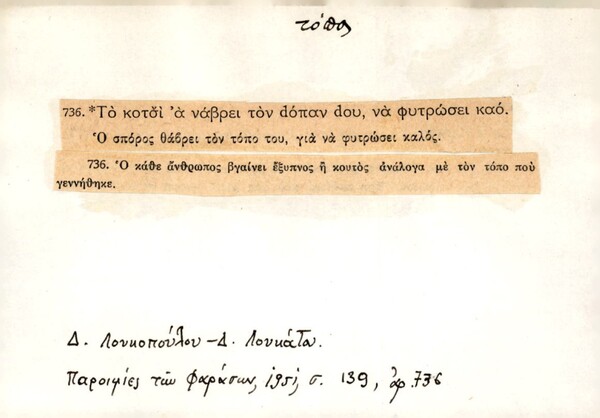 τόπος
736. *Τὸ κοτσ̌ὶ ’ὰ νάβρει τὸν dόπαν dου, νὰ φυτρώσει καό.
Ὁ σπόρος θάβρει τὸν τόπο του, γιὰ νὰ φυτρώσει καλός.
736. Ὁ κάθε ἄνθρωπος βγαίνει ἔξυπνος ἢ κουτὸς ἀνάλογα μὲ τὸν τόπο ποὺ
γεννήθηκε.
Δ. Λουκοπούλου – Δ. Λουκάτα.
Παροιμίες τῶν Φαράσων, 1951, σ. 139, ἀρ. 736